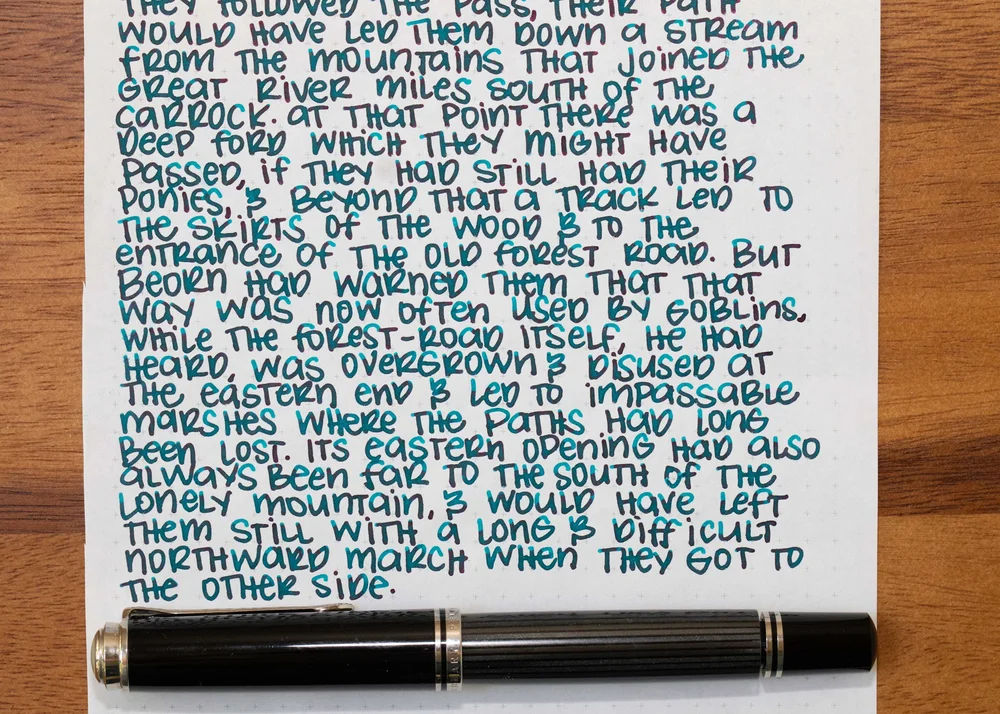 THEY FOLLOWED THE PASS, THEIR PATH
WOULD HAVE LED THEM DOWN A STREAM
FROM THE MOUNTAINS THAT JOINED THE
GREAT RIVER MILES SOUTH OF THE
CARROCK. AT THAT POINT THERE WAS A
DEEP FORD WHICH THEY MIGHT HAVE
PASSED, IF THEY HAD STILL HAD THEIR
PONIES, & BEYOND THAT A TRACK LED TO
THE SKIRTS OF THE WOOD & TO THE
ENTRANCE OF THE OLD FOREST ROAD. BUT
BEORN HAD WARNED THEM THAT THAT
WAY WAS NOW OFTEN USED BY GOBLINS,
WHILE THE FOREST-ROAD ITSELF, HE HAD
HEARD, WAS OVERGROWN & DISUSED AT
THE EASTERN END & LED TO IMPASSABLE
MARSHES WHERE THE PATHS HAD LONG
BEEN LOST. ITS EASTERN OPENING HAD ALSO
ALWAYS BEEN FAR TO THE SOUTH OF THE
LONELY MOUNTAIN, & WOULD HAVE LEFT
THEM STILL WITH A LONG & DIFFICULT
NORTHWARD MARCH WHEN THEY GOT TO
THE OTHER SIDE.